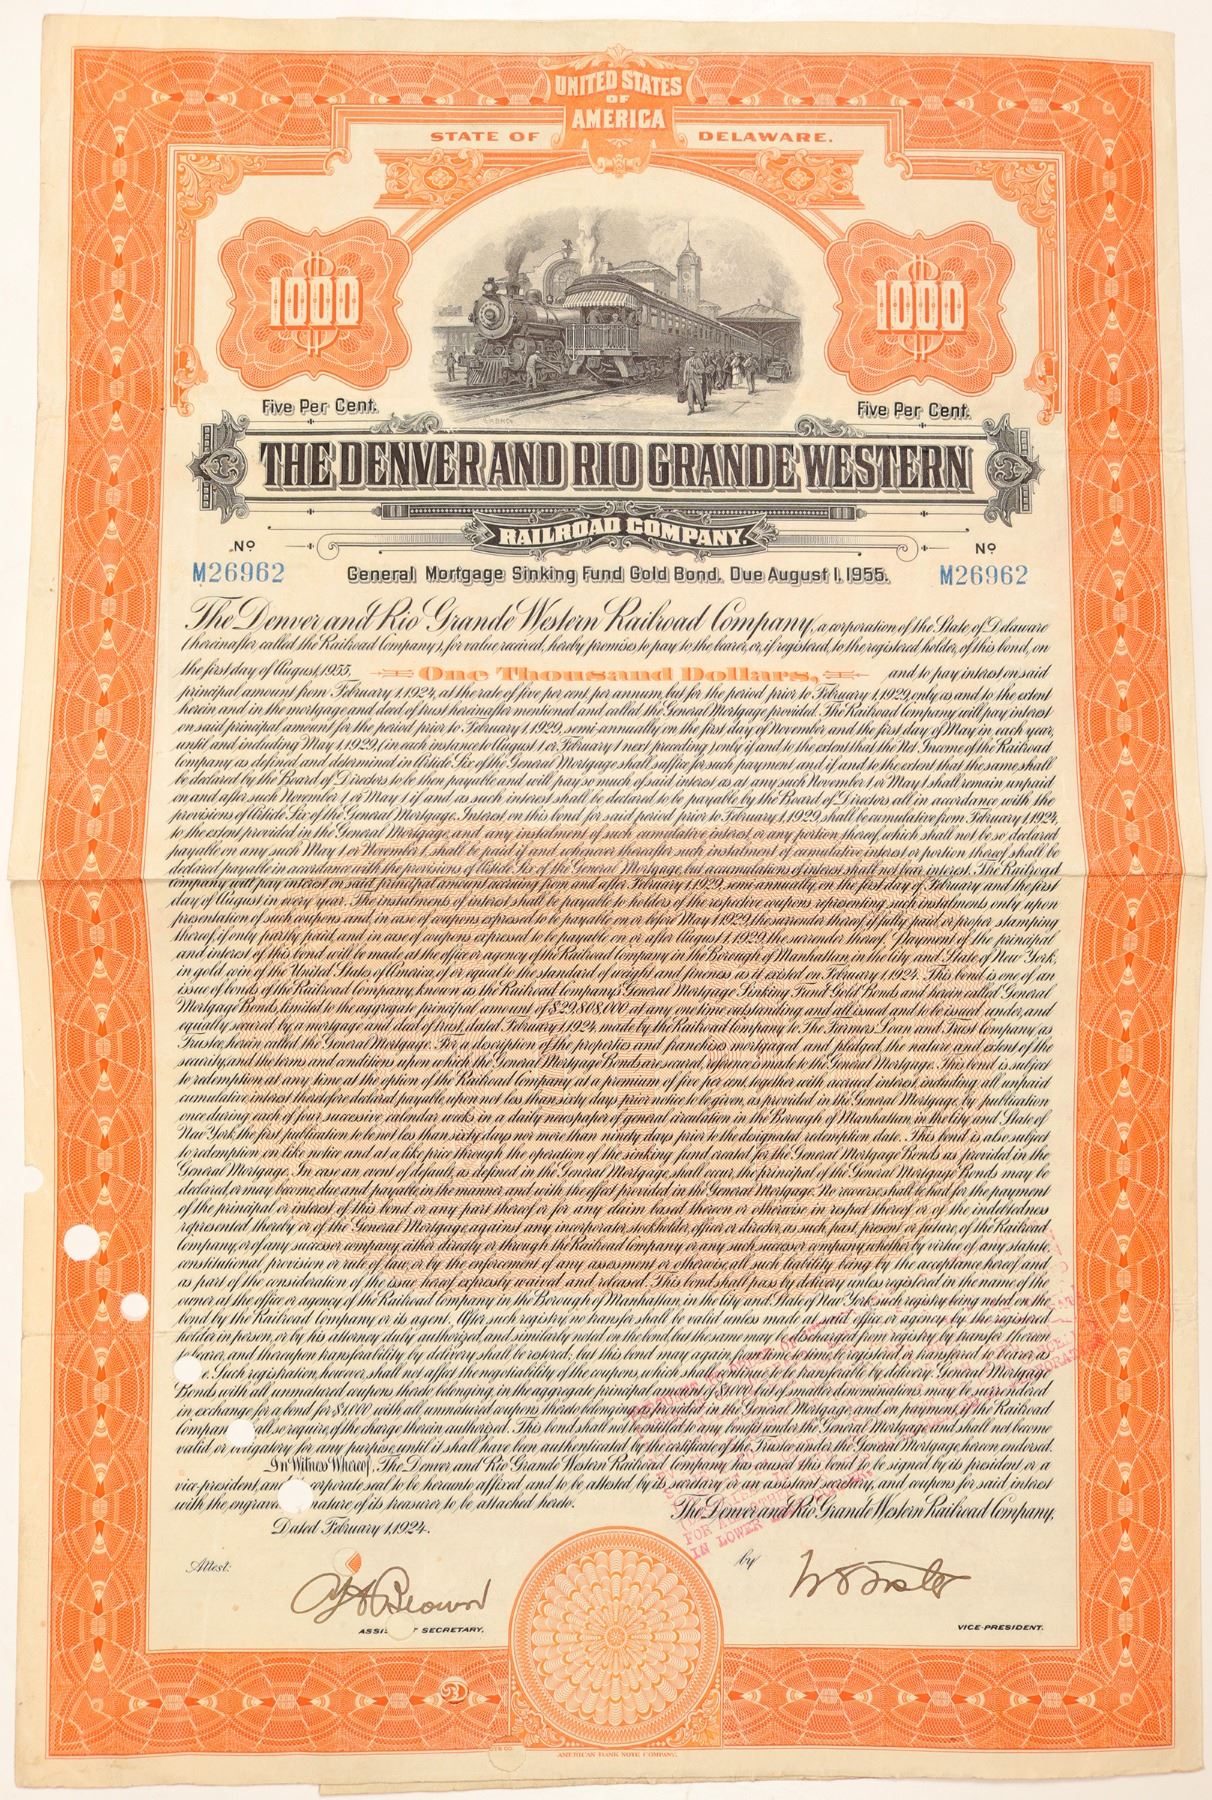 UNITED STATES
OF
AMERICA
STATE OF DELAWARE.
1000
1000
Five Per Cent.
Five Per Cent.
THE DENVER AND RIO GRANDE WESTERN
RAILROAD COMPANY.
No
No
M26962
General Mortgage Sinking Fund Gold Bond, Due August 1, 1955.
M26962
The Denver and Rio Grande Western Railroad Company, a corporation of the State of Delaware
(hereinafter called the Railroad Company), for value received, hereby promises to pay to the bearer, or, if registered, to the registered holder, of this bond, on
the first day of August, 1955, One Thousand Dollars, and to pay interest on said
principal amount from February 1, 1924, at the rate of five per cent. per annum, but for the period prior to February 1, 1929, only as and to the extent
herein and in the mortgage and deed of trust hereinafter mentioned and called the General Mortgage provided. The Railroad Company will pay interest
on said principal amount for the period prior to February 1, 1929, semi-annually on the first day of November and the first day of May in each year,
until and including May 1, 1929, (in each instance to August 1 or February 1 next preceding) only if and to the extent that the Net Income of the Railroad
Company as defined and determined in Article Six of the General Mortgage shall suffice for such payment and if and to the extent that the same shall
be declared by the Board of Directors to be then payable and will pay so much of said interest as at any such November 1 or May 1 shall remain unpaid
on and after such November 1 or May 1 if and as such interest shall be declared to be payable by the Board of Directors all in accordance with the
provisions of Article Six of the General Mortgage. Interest on this bond for said period prior to February 1, 1929, shall be cumulative from February 1, 1924,
to the extent provided in the General Mortgage, and any instalment of such cumulative interest, or any portion thereof, which shall not be so declared
payable on any such May 1 or November 1, shall be paid if and whenever thereafter such instalment of cumulative interest or portion thereof shall be
declared payable in accordance with the provisions of Article Six of the General Mortgage, but accumulations of interest shall not bear interest. The Railroad
Company will pay interest on said principal amount accruing from and after February 1, 1929, semi-annually on the first day of February and the first
day of August in every year. The instalments of interest shall be payable to holders of the respective coupons representing such instalments only upon
presentation of such coupons and, in case of coupons expressed to be payable on or before May 1, 1929, the surrender thereof, if fully paid, or proper stamping
thereof, if only partly paid, and in case of coupons expressed to be payable on or after August 1, 1929, the surrender thereof. Payment of the principal
and interest of this bond will be made at the office or agency of the Railroad Company in the Borough of Manhattan, in the City and State of New York,
in gold coin of the United States of America, of or equal to the standard of weight and fineness as it existed on February 1, 1924. This bond is one of an
issue of bonds of the Railroad Company, known as the Railroad Company's General Mortgage Sinking Fund Gold Bonds and herein called General
Mortgage Bonds, limited to the aggregate principal amount of $29,808,000 at any one time outstanding and all issued and to be issued under, and
equally secured by, a mortgage and deed of trust, dated February 1, 1924, made by the Railroad Company to The Farmers' Loan and Trust Company, as
Trustee, herein called the General Mortgage. For a description of the properties and franchises mortgaged and pledged, the nature and extent of the
security, and the terms and conditions upon which the General Mortgage Bonds are secured, reference is made to the General Mortgage. This bond is subject
to redemption at any time at the option of the Railroad Company at a premium of five per cent, together with accrued interest, including all unpaid
cumulative interest theretofore declared payable, upon not less than sixty days prior notice to be given, as provided in the General Mortgage, by publication
once during each of four successive calendar weeks in a daily newspaper of general circulation in the Borough of Manhattan, in the City and State of
New York, the first publication to be not less than sixty days nor more than ninety days prior to the designated redemption date. This bond is also subject
to redemption on like notice and at a like price through the operation of the sinking fund created for the General Mortgage Bonds as provided in the
General Mortgage. In case an event of default, as defined in the General Mortgage, shall occur, the principal of the General Mortgage Bonds may be
declared, or may become, due and payable, in the manner and with the effect provided in the General Mortgage. No recourse shall be had for the payment
of the principal or interest of this bond or any part thereof or for any claim based thereon or otherwise in respect thereof or of the indebtedness
represented thereby or of the General Mortgage, against any incorporator, stockholder, officer or director, as such, past, present or future, of the Railroad
Company, or of any successor company, either directly or through the Railroad Company or any such successor company, whether by virtue of any statute,
constitutional provision or rule of law, or by the enforcement of any assessment or otherwise, all such liability being by the acceptance hereof and
as part of the consideration of the issue hereof expressly waived and released. This bond shall pass by delivery unless registered in the name of the
owner at the office or agency of the Railroad Company in the Borough of Manhattan, in the City and State of New York, such registry being noted on the
bond by the Railroad Company or its agent. After such registry no transfer shall be valid unless made at said office or agency by the registered
holder in person, or by his attorney duly authorized, and similarly noted on the bond, but the same may be discharged from registry by transfer thereon
to bearer, and thereupon transferability by delivery shall be restored; but this bond may again from time to time be registered or transferred to bearer as
e. Such registration, however, shall not affect the negotiability of the coupons, which shall continue to be transferable by delivery. General Mortgage
Bonds with all unmatured coupons thereto belonging, in the aggregate principal amount of $1000, but of smaller denominations, may be surrendered
in exchange for a bond for $1000 with all unmatured coupons thereto belonging, as provided in the General Mortgage and on payment, if the Railroad
Company all so require, of the charge therein authorized. This bond shall not be entitled to any benefit under the General Mortgage and shall not become
valid or obligatory for any purpose, until it shall have been authenticated by the certificate of the Trustee under the General Mortgage, hereon endorsed.
In Witness Whereof, The Denver and Rio Grande Western Railroad Company has caused this bond to be signed by its president or a
vice-president, and orporate seal to be hereunto affixed and to be attested by its secretary or an assistant secretary, and coupons for said interest
with the engraved nature of its treasurer to be attached hereto.
The Denver and Rio Grande Western Railroad Company,
Dated February 1, 1924.
IN LOWER
Attest:
by
ASSI T SECRETARY.
VICE-PRESIDENT.
AMERICAN BANK NOTE COMPANY.